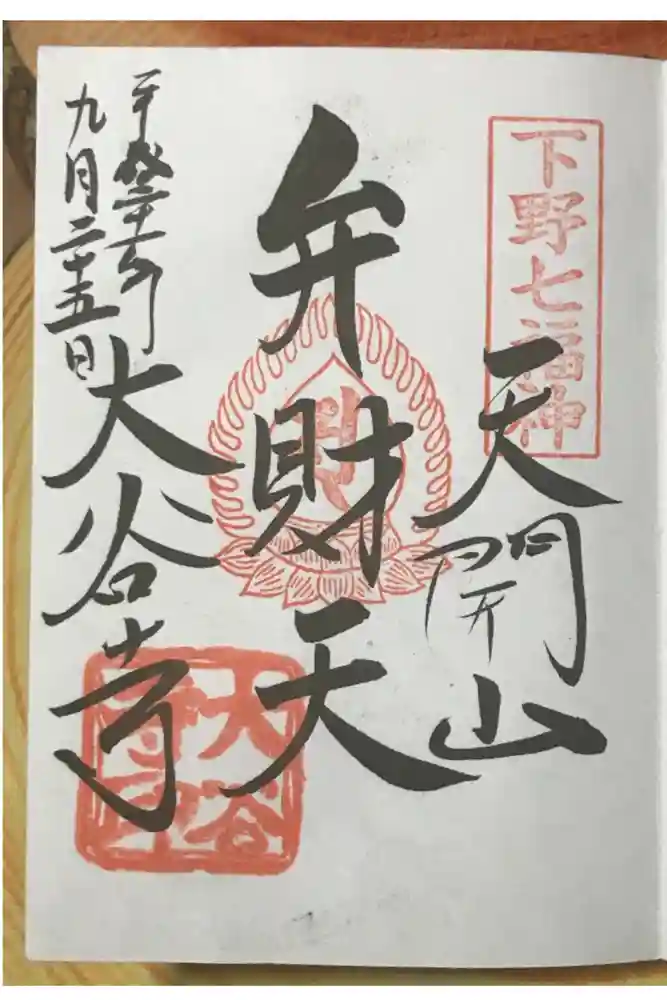 下野七福神
天開山
弁財天
平成二十年
九月二十五日
大谷寺
大谷寺印